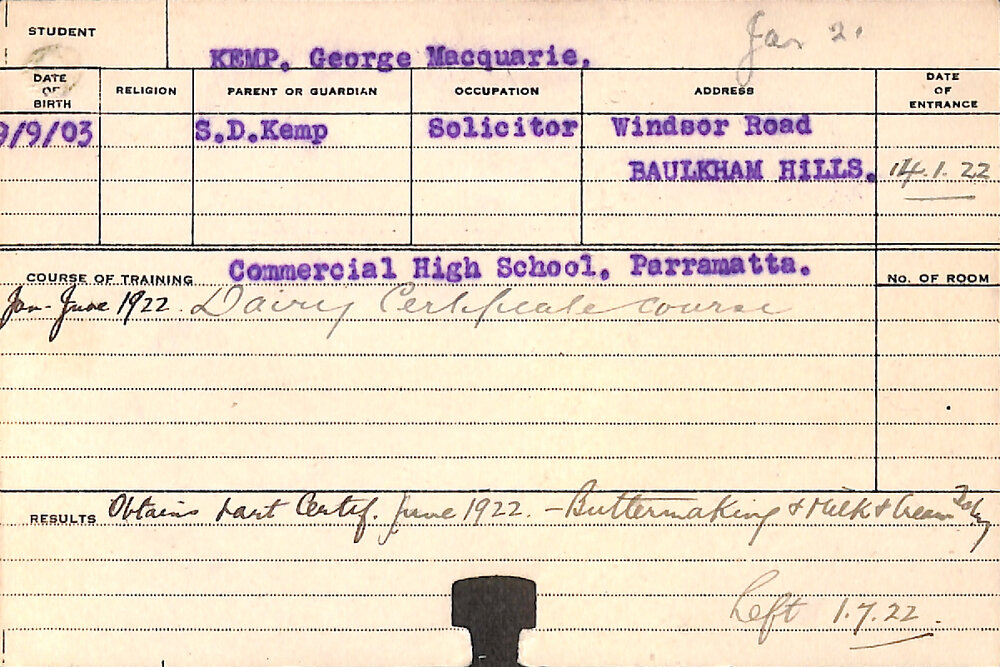 STUDENT
KEMP. George Macquarie.
Jan 2.
DATE OF BIRTH
RELIGION
PARENT OR GUARDIAN
OCCUPATION
ADDRESS
DATE OF ENTRANCE
9/9/03
S.D.Kemp
Solicitor
Windsor Road
BAULKHAM HILLS.
14.1.22
COURSE OF TRAINING
Commercial High School, Parramatta.
No. OF ROOM
Jan - June 1922. Dairy Certificate course
RESULTS
Obtains part Certif. June 1922. - Buttermaking & Milk & Cream
Left 1.7.22.